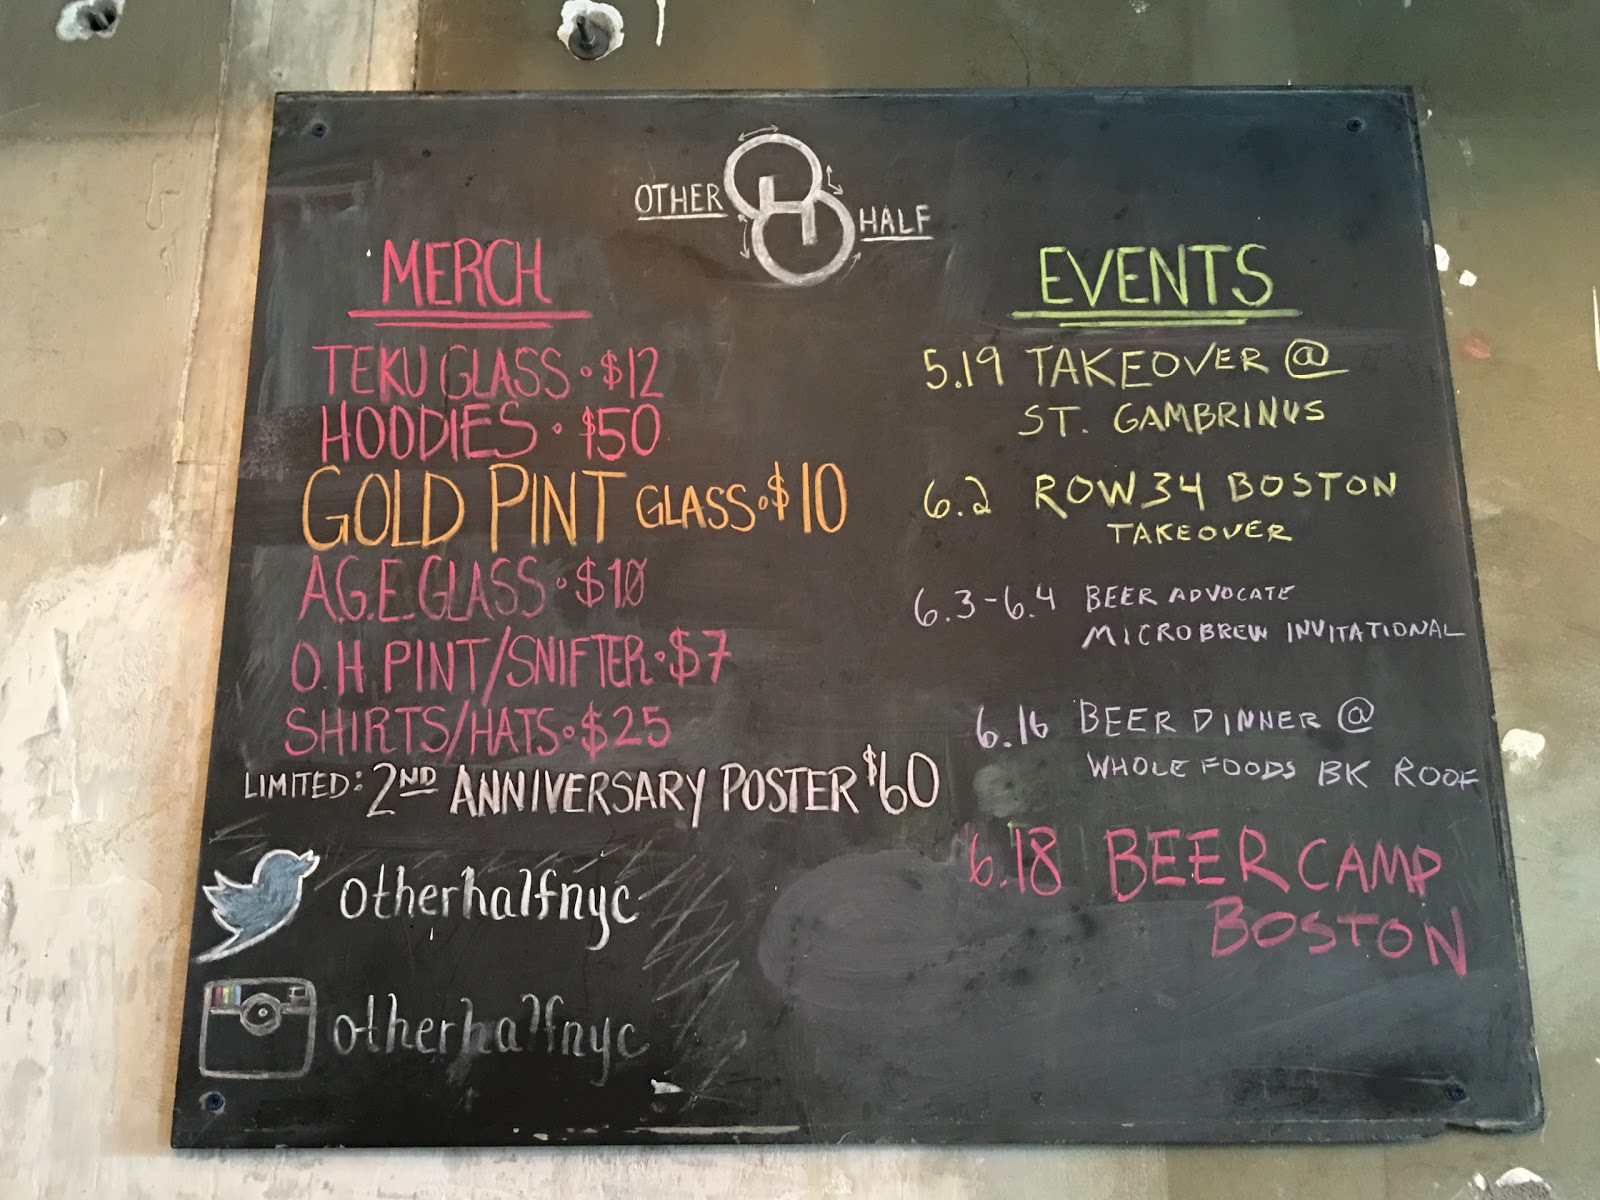 OTHER HALF
MERCH
TEKU GLASS • $12
HOODIES • $50
GOLD PINT GLASS • $10
A.G.E. GLASS • $10
O.H. PINT/SNIFTER • $7
SHIRTS/HATS • $25
LIMITED: 2ND ANNIVERSARY POSTER $60
otherhalfnyc
otherhalfnyc
EVENTS
5.19 TAKEOVER @
ST. GAMBRINUS
6.2 ROW 34 BOSTON
TAKEOVER
6.3-6.4 BEER ADVOCATE
MICROBREW INVITATIONAL
6.16 BEER DINNER @
WHOLE FOODS BK ROOF
6.18 BEER CAMP
BOSTON